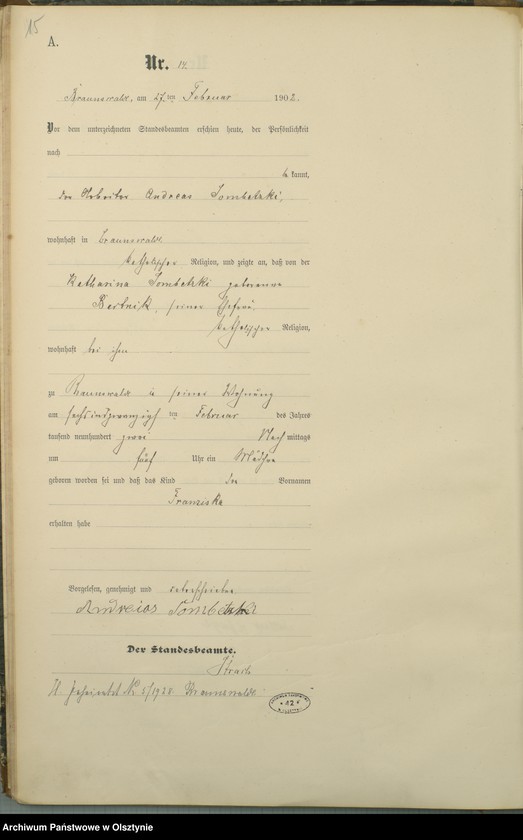 15
A.
Nr. 14.
Braunswalde, am 27ten Februar 1902.
Vor dem unterzeichneten Standesbeamten erschien heute, der Persönlichkeit
nach
be kannt,
der Arbeiter Andreas Tombetzki,
wohnhaft in Braunswalde
katholischer Religion, und zeigte an, daß von der
Katharina Tombetzki geborenen
Bertnik, seiner Ehefrau,
katholischer Religion,
wohnhaft bei ihm
zu Braunswalde in seiner Wohnung
am sechsundzwanzigsten Februar des Jahres
tausend neunhundert zwei Nach mittags
um fünf Uhr ein Mädchen
geboren worden sei und daß das Kind den Vornamen
Franziska
erhalten habe
Vorgelesen, genehmigt und unterschrieben
Andreias Tombetzki
Der Standesbeamte.
H. geheiratet No 2/1928. Braunswalde
Archiwum Państwowe w Olsztynie